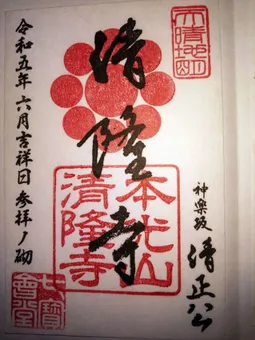 天晴地明
神楽坂 清正公
清隆寺
本光山
清隆寺
令和五年六月吉祥日参拝ノ砌